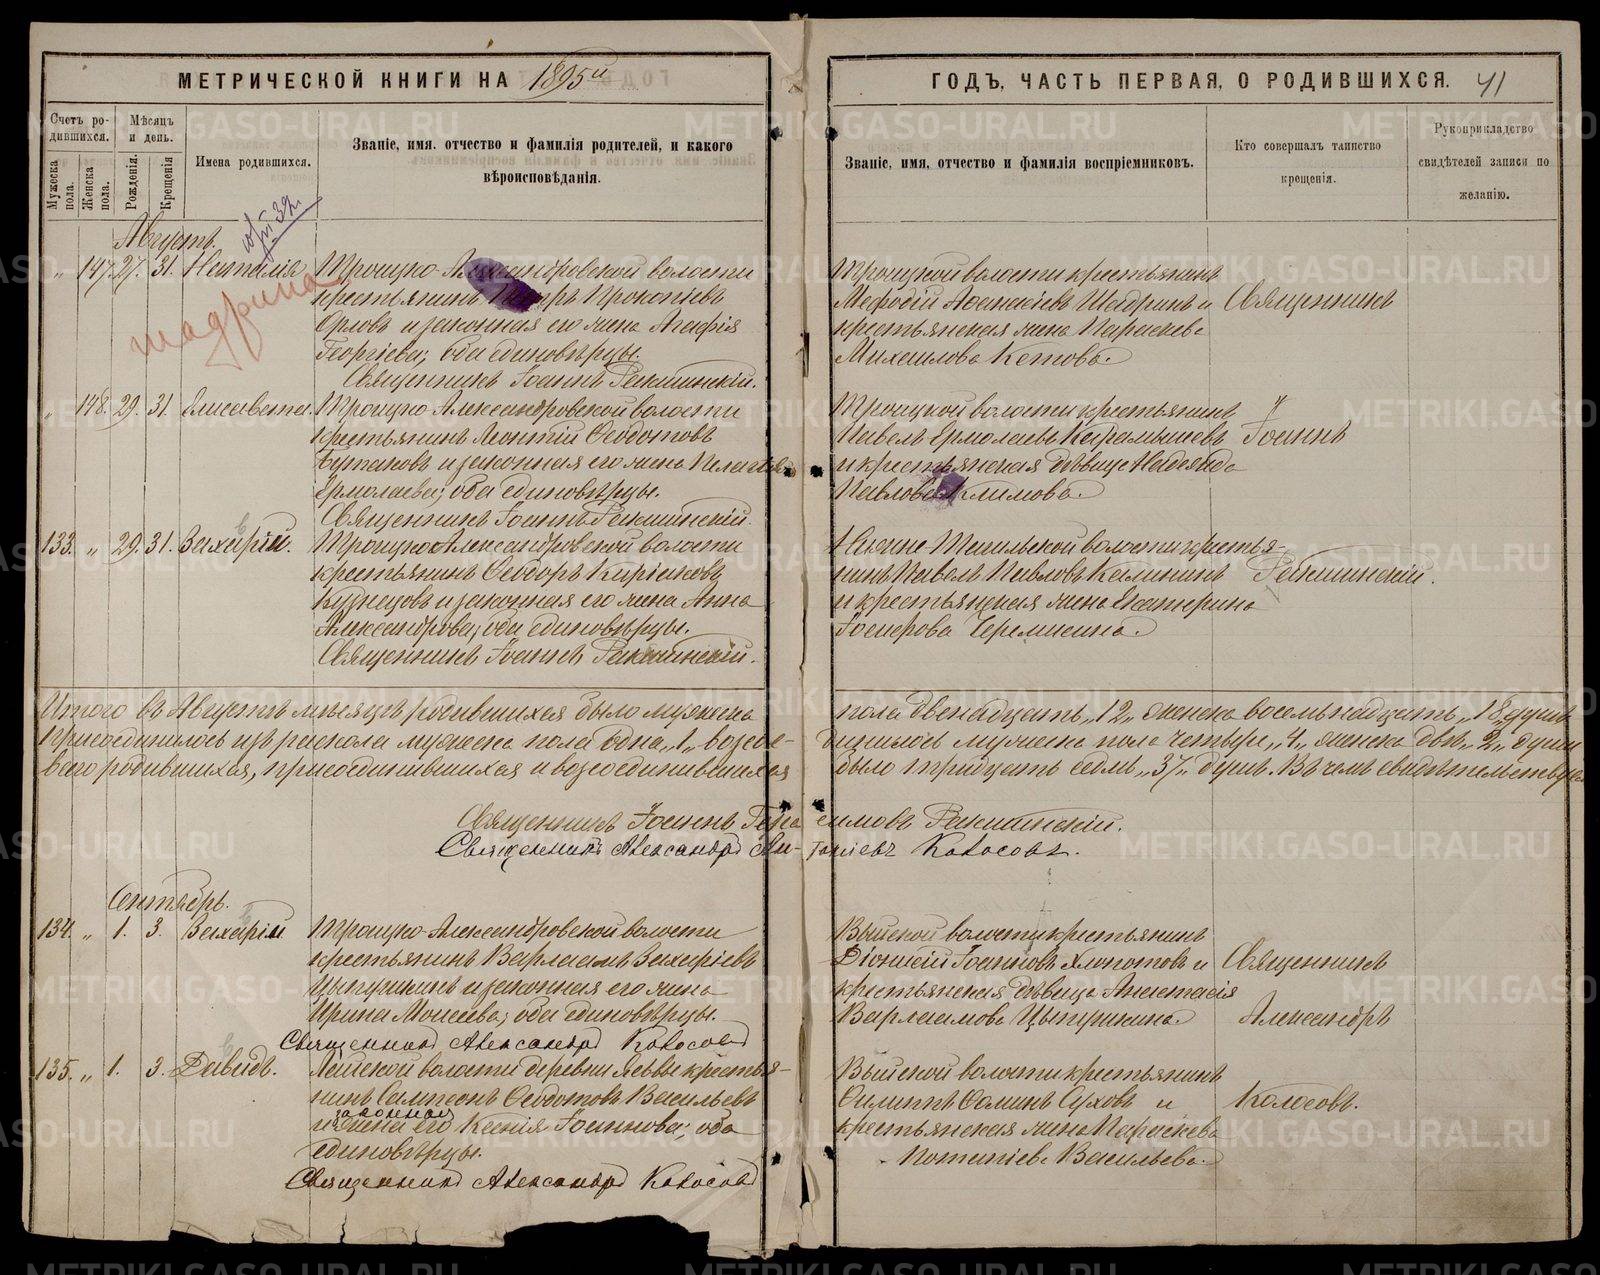 МЕТРИЧЕСКОЙ КНИГИ НА 1895й
ГОДЪ, ЧАСТЬ ПЕРВАЯ, О РОДИВШИХСЯ. 41
Счетъ ро-
дившихся.
Мужеска пола.
Женска пола.
Мѣсяцъ и день.
Рожденія.
Крещенія
Имена родившихся.
Званіе, имя. отчество и фамилія родителей, и какого
вѣроисповѣданія.
Званіе, имя, отчество и фамилія воспріемниковъ.
Кто совершалъ таинство
крещенія.
Рукоприкладство
свидѣтелей записи по
желанію.
Августъ.
„ 147. 27. 31. Наталія
шадрина
Троицко-Александровской волости
крестьянинъ Прокопіевъ
Орловъ и законная его жена Агафія
Георгіева; оба единовѣрцы.
Священникъ Іоаннъ Ракитинскій.
Троицкой волости крестьянинъ
Мефодій Шадринъ и
крестьянская жена Параскева
Михаилова Кетова.
Священникъ
„ 148. 29. 31. Елисавета.
Троицко-Александровской волости
крестьянинъ Леонтій Ѳеодотовъ
Бутаковъ и законная его жена Пелагія
Ермолаева; оба единовѣрцы.
Священникъ Іоаннъ Ракитинскій.
Троицкой волости крестьянинъ
Павелъ Ермолаевъ Карамышевъ
и крестьянская дѣвица Надежда
Павлова Климова.
Іоаннъ
133. „ 29. 31. Захарій.
Троицко-Александровской волости
крестьянинъ Ѳеодоръ Киріаковъ
Кузнецовъ и законная его жена Анна
Александрова; оба единовѣрцы.
Священникъ Іоаннъ Ракитинскій.
Нижне-Тагильской волости крестья-
нинъ Павелъ Павловъ Калининъ
и крестьянская жена Екатерина
Черемисина.
Ракитинскій.
Итого въ Августѣ мѣсяцѣ родившихся было мужеска пола двенадцать „12„ женска восемьнадцать „18„ душъ
присоединилось изъ раскола мужеска пола одна „1„ возсое- динилось мужеска пола четыре „4„ женска двѣ „2„ души
всего родившихся, присоединившихся и возсоединившихся было тридцать семь „37„ душъ. Въ чемъ свидѣтельствуемъ
Священникъ Іоаннъ Герасимовъ Ракитинскій.
Священникъ Александръ Колосовъ.
Сентябрь.
134. „ 1. 3. Захарій
Троицко-Александровской волости
крестьянинъ Варлаамъ Захаріевъ
Цыпушкинъ и законная его жена
Ирина Моисеева; оба единовѣрцы.
Священникъ Александръ Колосовъ
Выйской волости крестьянинъ
Діонисій Іоанновъ Хлопотовъ и
крестьянская дѣвица Анастасія
Варлаамова Цыпушкина.
Священникъ
Александръ
135. „ 1. 3. Давидъ.
Лайской волости деревни Левви крестья-
нинъ Сампсонъ Ѳеодотовъ Васильевъ
и законная жена его Ксенія Іоаннова; оба
единовѣрцы.
Священникъ Александръ Колосовъ
Выйской волости крестьянинъ
Филиппъ Ѳоминъ Суховъ и
крестьянская жена Параскева
Потапіева Васильева.
Колосовъ.
METRIKI.GASO-URAL.RU